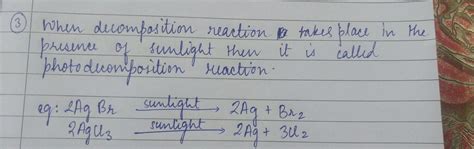 ③ When decomposition reaction takes place in the
presence of sunlight then it is called
photodecomposition reaction.
eg: 2AgBr sunlight→ 2Ag + Br₂
2AgCl₃ sunlight→ 2Ag + 3Cl₂